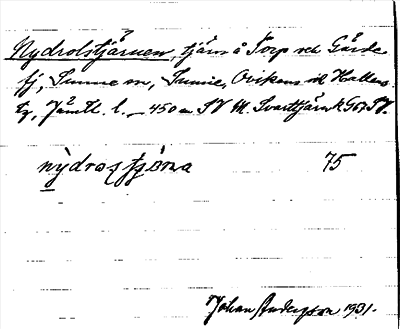 Nydrolstjärnen, tjärn å Torp och Gärde
fj, Sunne sn, Sunne, Ovikens och Hallens
tg, Jämtl. l. – 450 m SV M. Svarttjärn h 567 SV.
nỳdrostjöṇa 75
Johan Anderzon 1931.